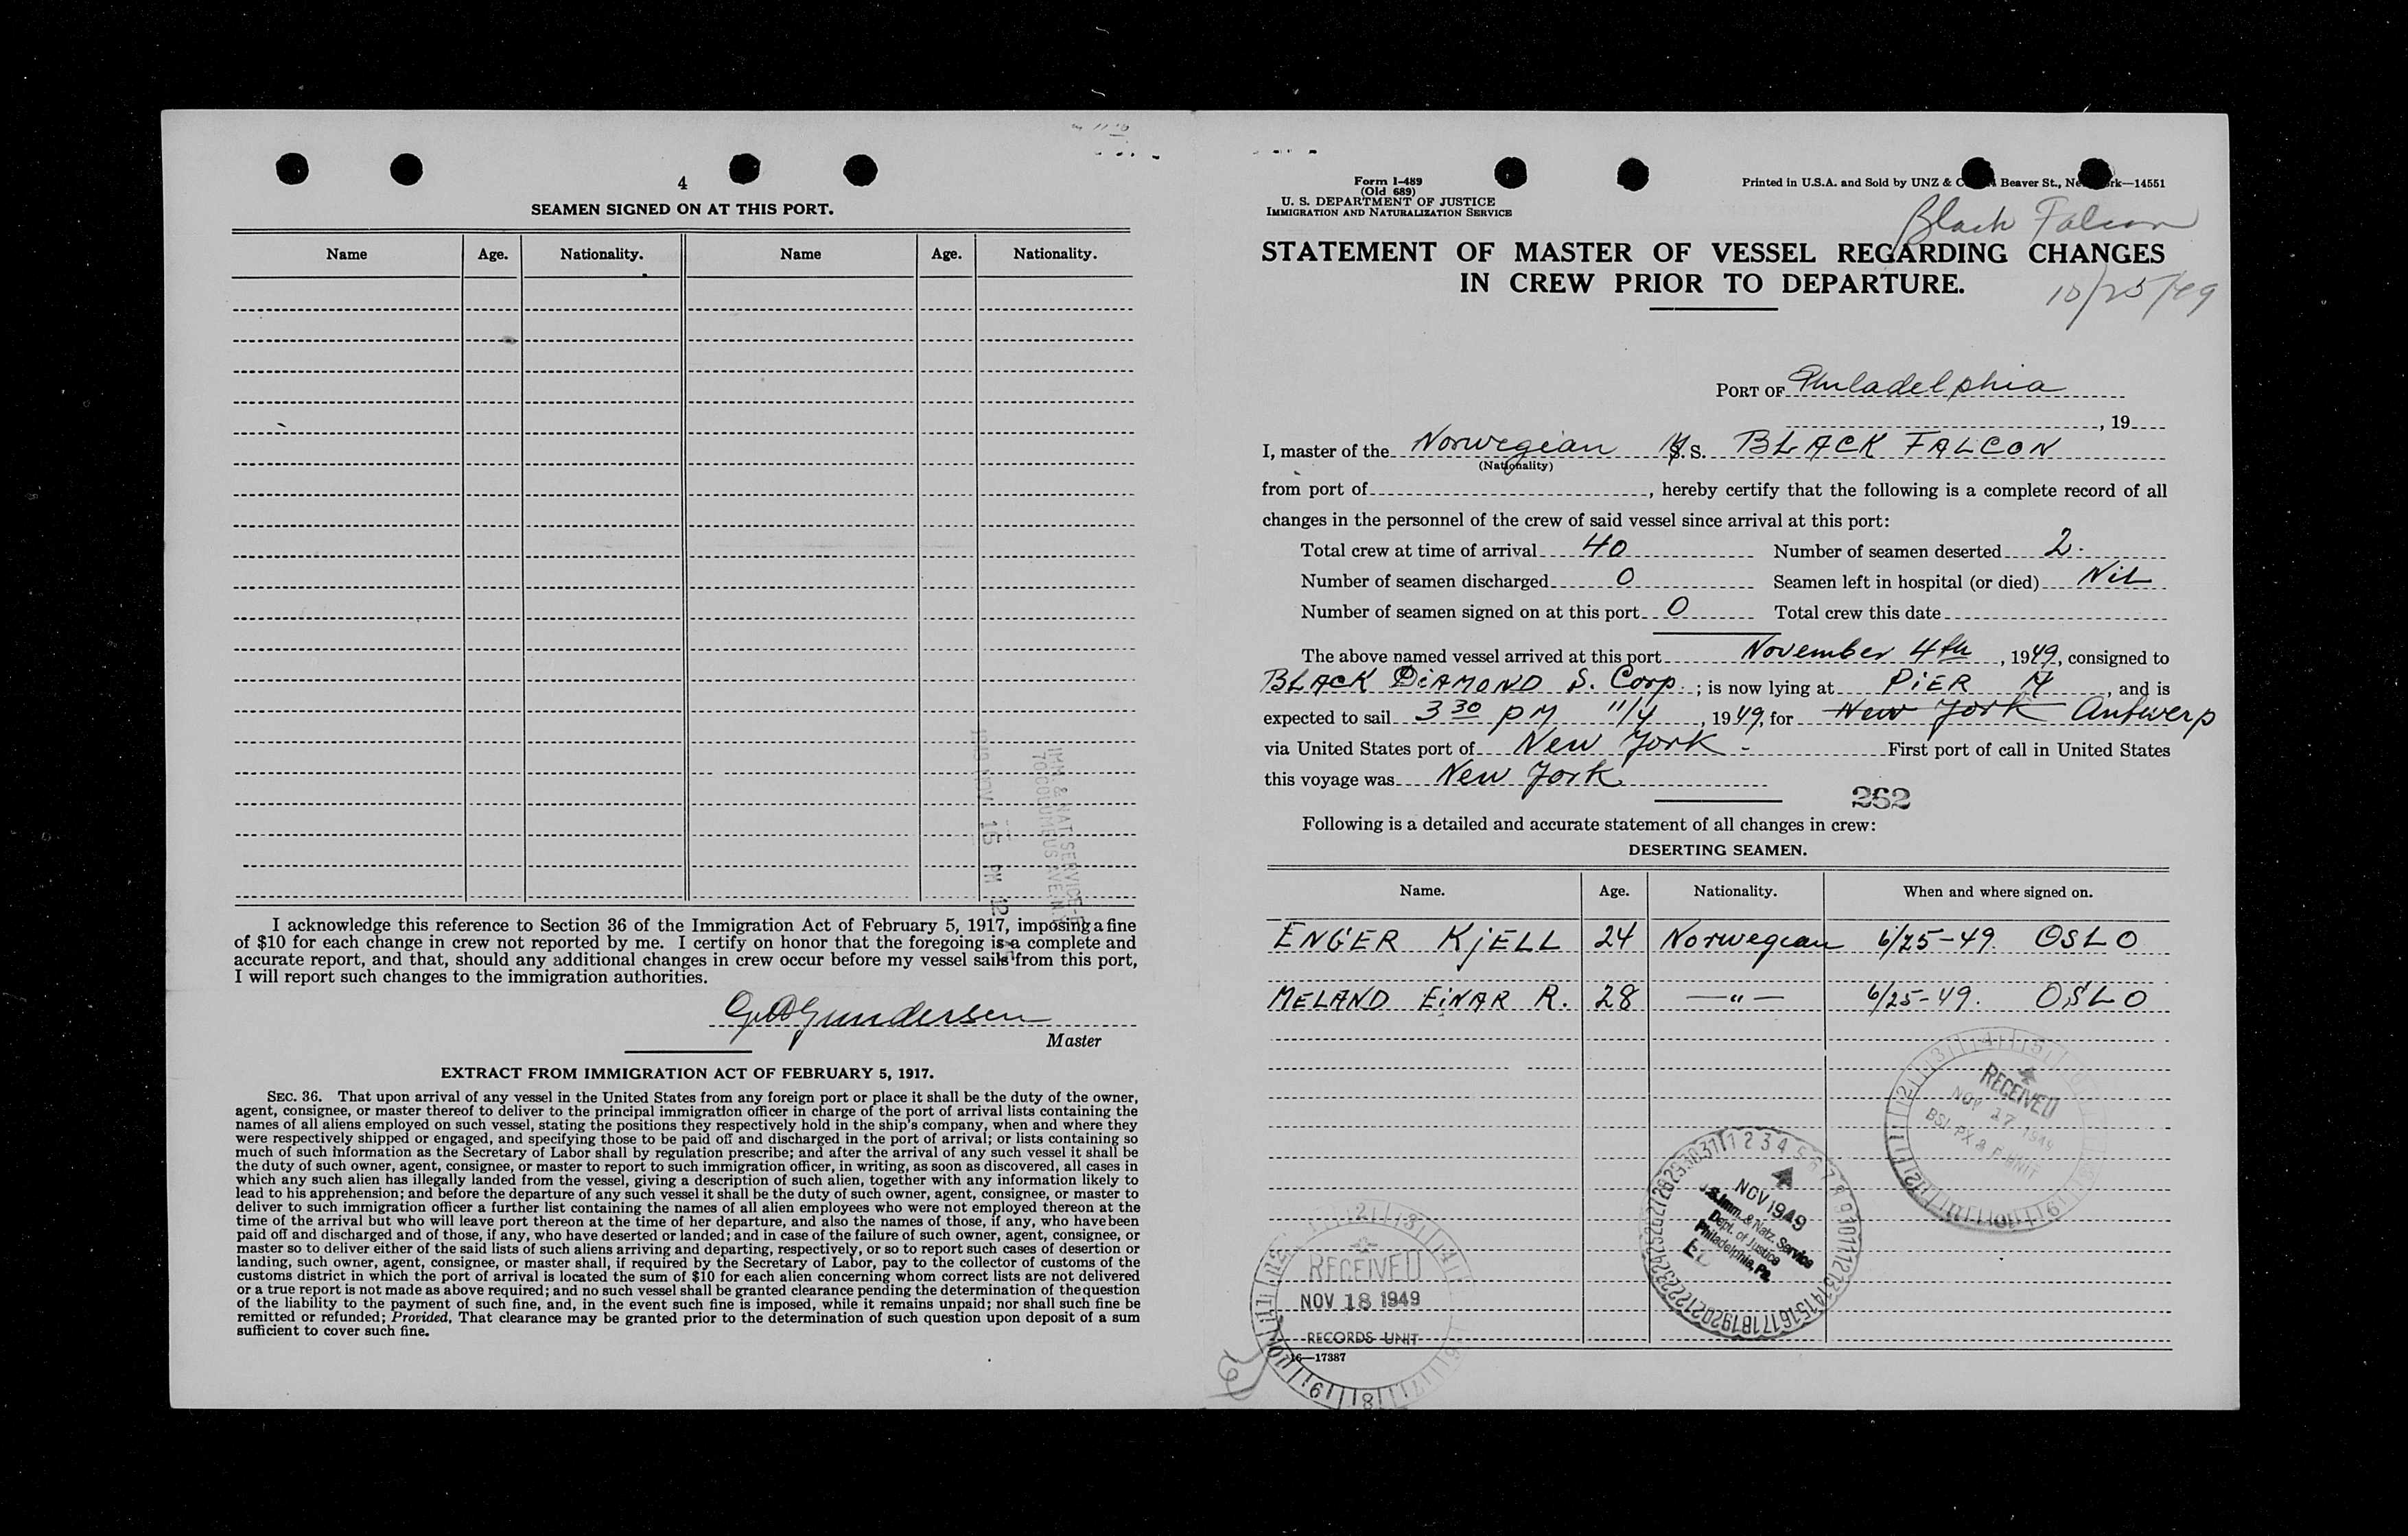 4
SEAMEN SIGNED ON AT THIS PORT.
Name Age. Nationality. Name Age. Nationality.
IMM & NAT SERVICE
70 COLUMBUS AVE N.Y.
1949 NOV 16 PM 12
I acknowledge this reference to Section 36 of the Immigration Act of February 5, 1917, imposing a fine
of $10 for each change in crew not reported by me. I certify on honor that the foregoing is a complete and
accurate report, and that, should any additional changes in crew occur before my vessel sails from this port,
I will report such changes to the immigration authorities.
Gundersen
Master
EXTRACT FROM IMMIGRATION ACT OF FEBRUARY 5, 1917.
SEC. 36. That upon arrival of any vessel in the United States from any foreign port or place it shall be the duty of the owner,
agent, consignee, or master thereof to deliver to the principal immigration officer in charge of the port of arrival lists containing the
names of all aliens employed on such vessel, stating the positions they respectively hold in the ship's company, when and where they
were respectively shipped or engaged, and specifying those to be paid off and discharged in the port of arrival; or lists containing so
much of such information as the Secretary of Labor shall by regulation prescribe; and after the arrival of any such vessel it shall be
the duty of such owner, agent, consignee, or master to report to such immigration officer, in writing, as soon as discovered, all cases in
which any such alien has illegally landed from the vessel, giving a description of such alien, together with any information likely to
lead to his apprehension; and before the departure of any such vessel it shall be the duty of such owner, agent, consignee, or master to
deliver to such immigration officer a further list containing the names of all alien employees who were not employed thereon at the
time of the arrival but who will leave port thereon at the time of her departure, and also the names of those, if any, who have been
paid off and discharged and of those, if any, who have deserted or landed; and in case of the failure of such owner, agent, consignee, or
master so to deliver either of the said lists of such aliens arriving and departing, respectively, or so to report such cases of desertion or
landing, such owner, agent, consignee, or master shall, if required by the Secretary of Labor, pay to the collector of customs of the
customs district in which the port of arrival is located the sum of $10 for each alien concerning whom correct lists are not delivered
or a true report is not made as above required; and no such vessel shall be granted clearance pending the determination of the question
of the liability to the payment of such fine, and, in the event such fine is imposed, while it remains unpaid; nor shall such fine be
remitted or refunded; Provided, That clearance may be granted prior to the determination of such question upon deposit of a sum
sufficient to cover such fine.
Form I-489
(Old 689)
U. S. DEPARTMENT OF JUSTICE
IMMIGRATION AND NATURALIZATION SERVICE
Printed in U.S.A. and Sold by UNZ & Beaver St., 14551
Black Falcon
STATEMENT OF MASTER OF VESSEL REGARDING CHANGES
IN CREW PRIOR TO DEPARTURE.
10/25/49
PORT OF Philadelphia
, 19
I, master of the Norwegian M.S. BLACK FALCON
(Nationality)
from port of , hereby certify that the following is a complete record of all
changes in the personnel of the crew of said vessel since arrival at this port:
Total crew at time of arrival 40 Number of seamen deserted 2.
Number of seamen discharged 0 Seamen left in hospital (or died) Nil
Number of seamen signed on at this port 0 Total crew this date
The above named vessel arrived at this port November 4th, 1949, consigned to
BLACK DIAMOND S. Corp.; is now lying at PIER , and is
expected to sail 3 30 PM 11/4, 1949, for New York Antwerp
via United States port of New York - First port of call in United States
this voyage was New York
262
Following is a detailed and accurate statement of all changes in crew:
DESERTING SEAMEN.
Name. Age. Nationality. When and where signed on.
ENGER KJELL 24 Norwegian 6/25-49. OSLO
MELAND EINAR R. 28 —"— 6/25-49. OSLO
RECEIVED
NOV 17 1949
BSI-PX & F-UNIT
NOV 1949
Imm. & Natz. Service
Dept. of Justice
Philadelphia, Pa.
RECEIVED
NOV 18 1949
RECORDS UNIT
16—17387